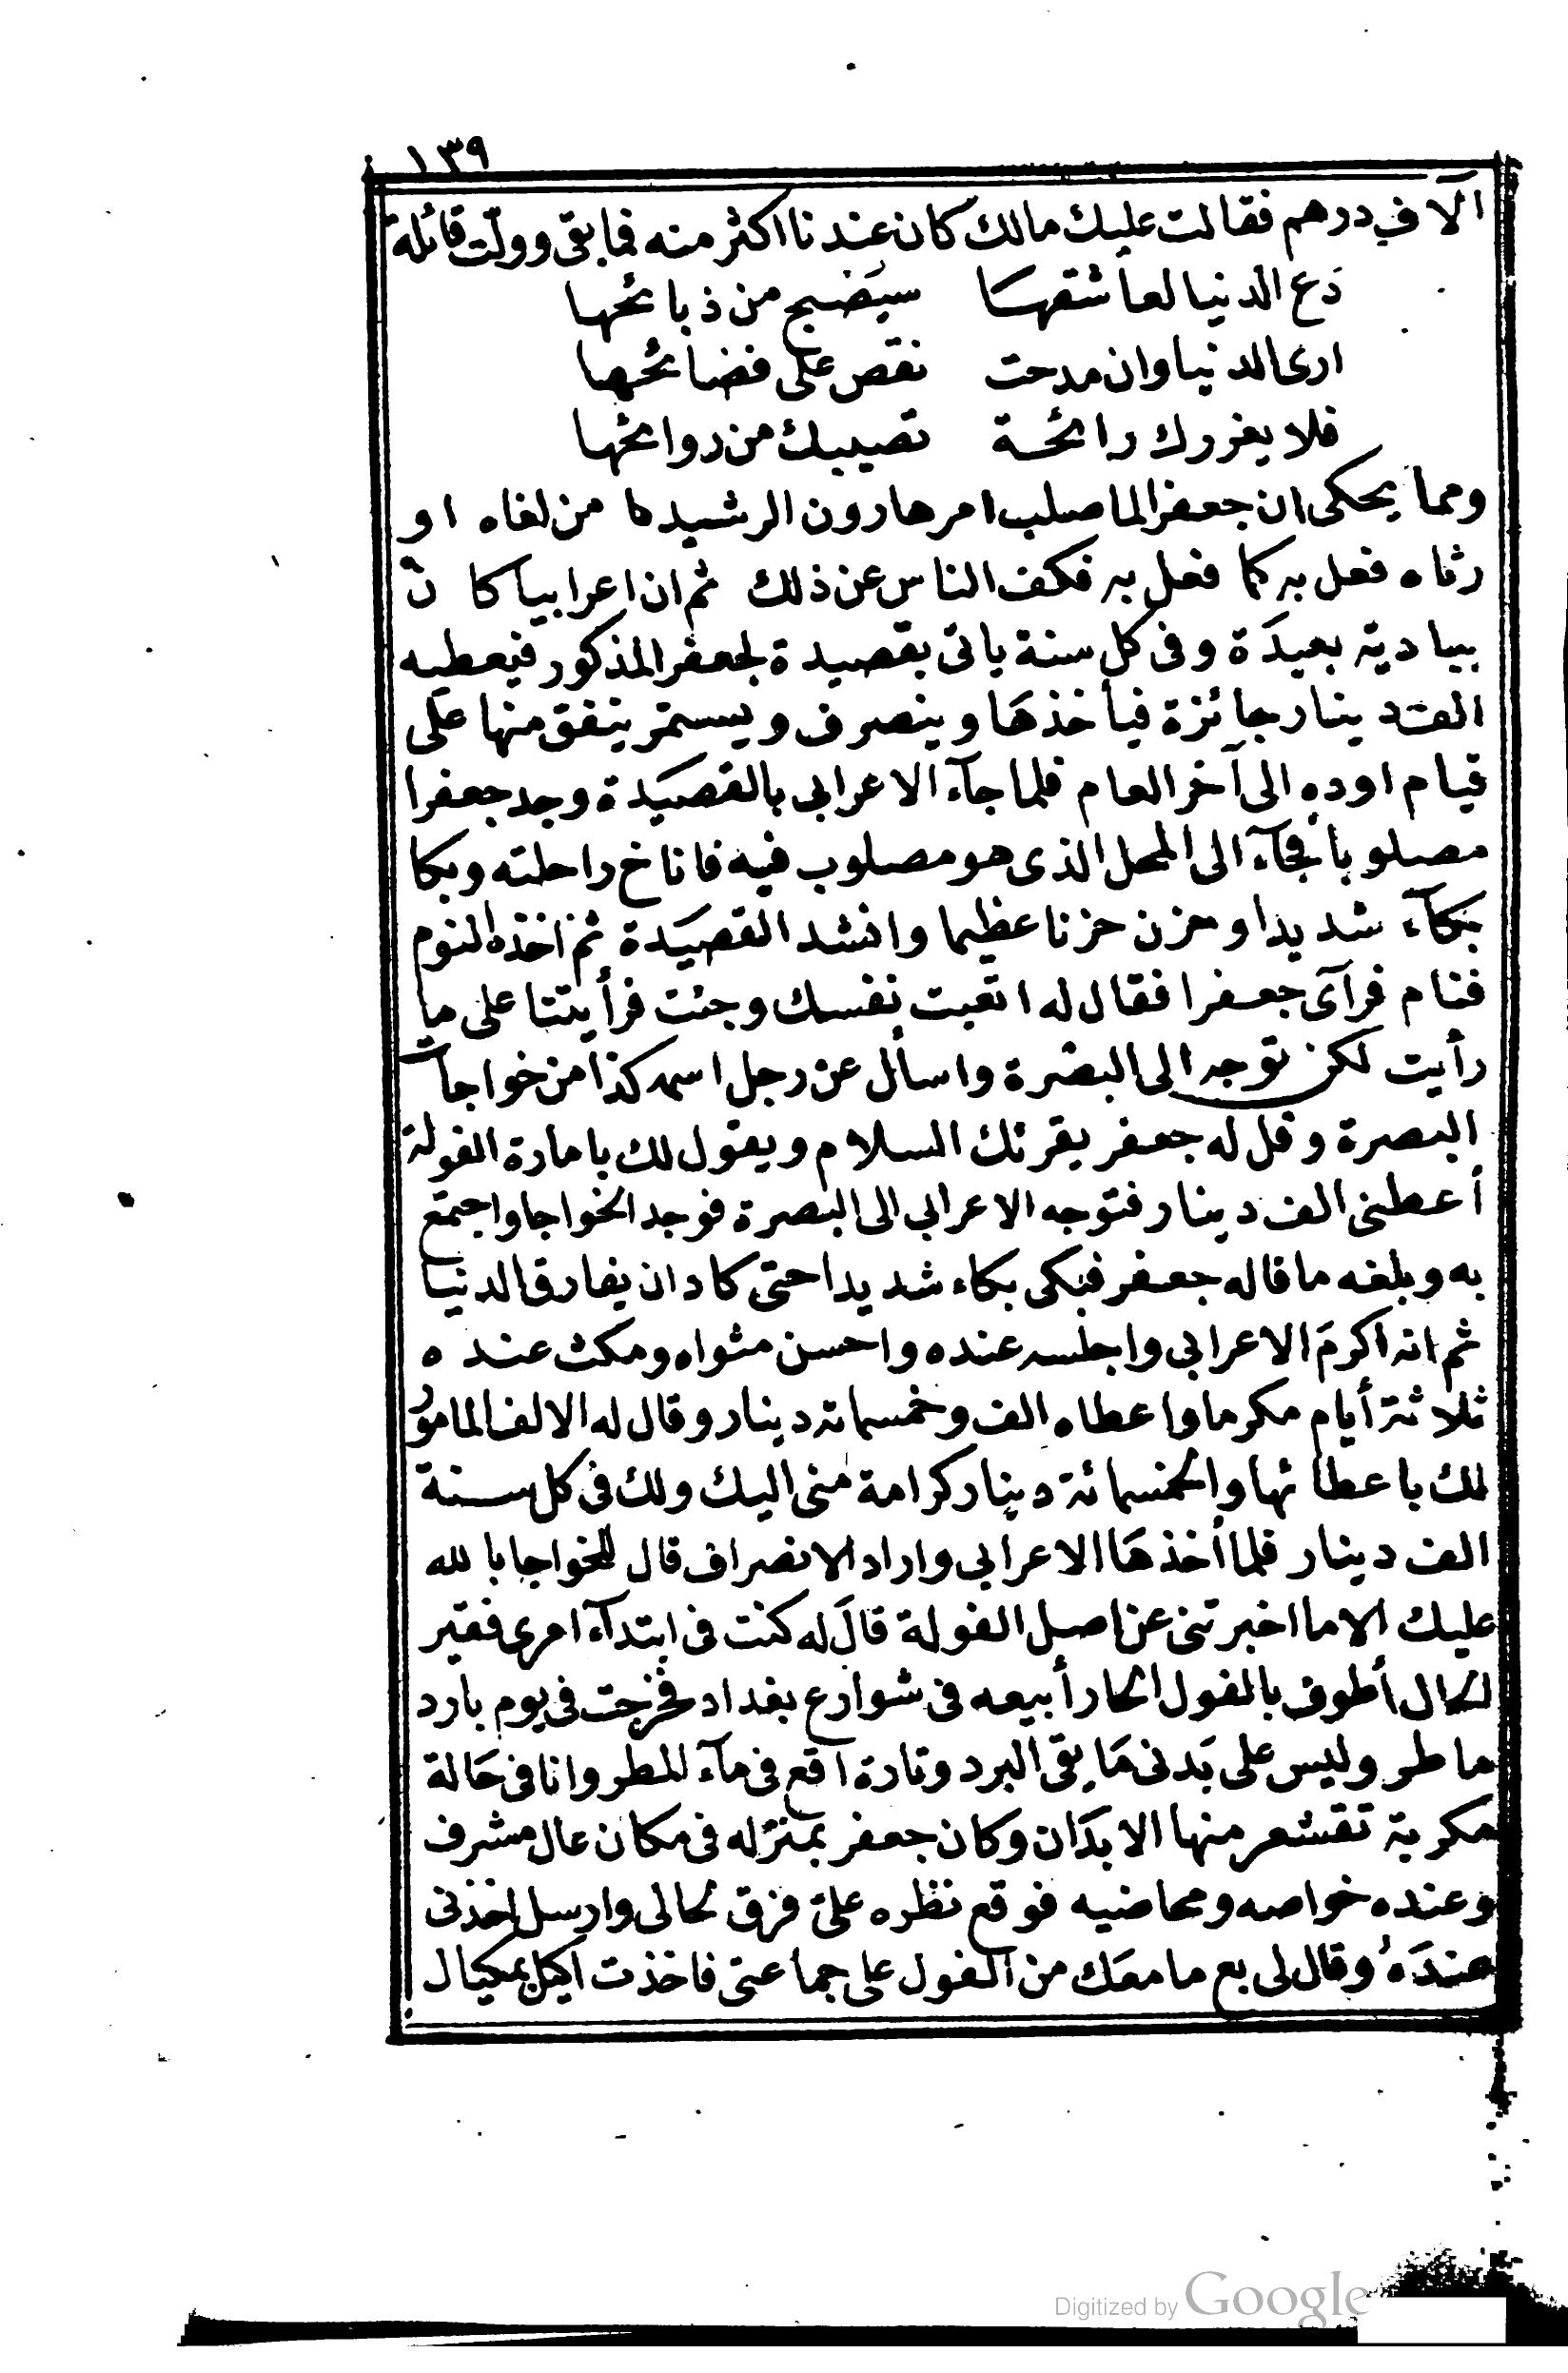 ١٣٩
الآف درهم فقالت عليك مالك كان عندنا اكثر منه فما بقى وولت قائلة
دَع الدنيا لعاشقها سيَضبح من ذبائحها
ارى الدنيا وان مدحت نقص على فضائحها
فلا يغررك رائحة تصيبك من روائحها
ومما يحكى ان جعفر الما صلب امر هارون الرشيد كا من لغاه او
رثاه فعل به كما فعل به فكف الناس عن ذلك ثم ان اعرابيا كان
ببادية بعيدَة وفى كل سنة ياتى بقصيدة لجعفر المذكور فيعطيه
الف دينار جائزة فيأخذهَا وينصرف ويستمر ينفق منها على
قيام اوده الى آخر العام فلما جآء الاعرابى بالقصَيدة وجد جعفرا
مصلوبا فجآء الى المحل الذى هو مصلوب فيه فاناخ راحلته وبكا
بكآء شديدا وحزن حزنا عظيما وانشد القصيَدة ثم اخذه النوم
فنام فرآى جعفرا فقال له اتعبت نفسك وجئت فرأيتنا على ما
رأيت لكن توجه الى البصرة واسأل عن رجل اسمه كذا من خواجات
البصرة وقل له جعفر يقرئك السلام ويقول لك بامارة الفولة
أعطنى الف دينار فتوجه الاعرابى الى البصرة فوجد الخواجا واجتمع
به وبلغه ما قاله جعفر فبكى بكاء شديدا حتى كاد ان يفارق الدنيا
ثم انه اكرمَ الاعرابى واجلسه عنده واحسن مثواه ومكث عنده
ثلاثة أيام مكرما واعطاه الف وخمسمائة دينار وقال له الالف المامور
لك باعطائها والخمسمائة دينار كرامة منى اليك ولك فى كل سنة
الف دينار فلما أخذهَا الاعرابى واراد الانصراف قال للخواجا بالله
عليك الا ما اخبرتنى عن اصل الفولة قالَ له كنت فى ابتدآء امرى فقير
الحال أطوف بالفول الحار أبيعه فى شوارع بغداد فخرجت فى يوم بارد
ماطر وليس على بَدنى مَا يقى البرد وتارة اقع فى مآء المطر وانا فى حَالة
مكربة تقشعر منها الابدَان وكان جعفر بمنزله فى مكان عال مشرف
وعنده خواصه ومحاضيه فوقع نظره علىّ فرق لحالى وارسل اخذنى
عندَهُ وقال لى بع ما معَك من الفول على جماعتى فاخذت اكيل بمكيال
Digitized by Google